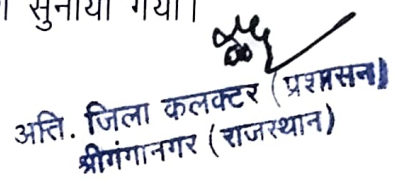 सुनाया गया।
अति. जिला कलक्टर (प्रशासन)
श्रीगंगानगर (राजस्थान)